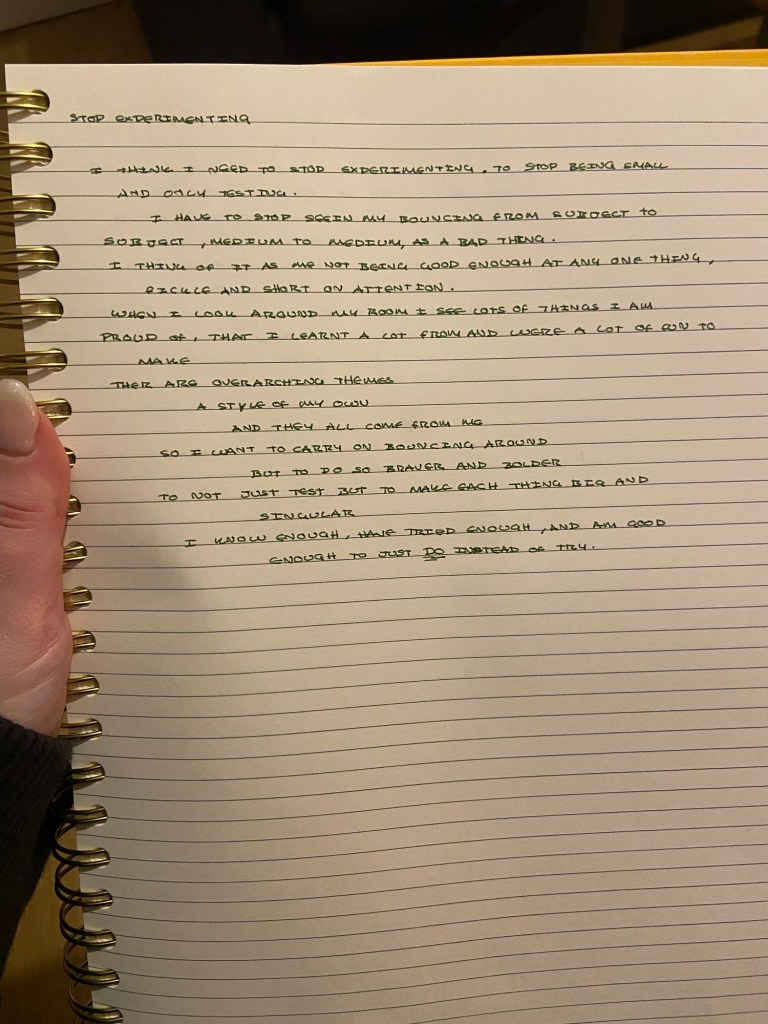 STOP EXPERIMENTING
I THINK I NEED TO STOP EXPERIMENTING. TO STOP BEING SMALL
AND ONLY TESTING.
I HAVE TO STOP SEEIN MY BOUNCING FROM SUBJECT TO
SUBJECT, MEDIUM TO MEDIUM, AS A BAD THING.
I THING OF IT AS ME NOT BEING GOOD ENOUGH AT ANY ONE THING,
FICKLE AND SHORT ON ATTENTION.
WHEN I LOOK AROUND MY ROOM I SEE LOTS OF THINGS I AM
PROUD OF, THAT I LEARNT A LOT FROM AND WERE A LOT OF FUN TO
MAKE
THER ARE OVERARCHING THEMES
A STYLE OF MY OWN
AND THEY ALL COME FROM ME
SO I WANT TO CARRY ON BOUNCING AROUND
BUT TO DO SO BRAVER AND BOLDER
TO NOT JUST TEST BUT TO MAKE EACH THING BIG AND
SINGULAR
I KNOW ENOUGH, HAVE TRIED ENOUGH, AND AM GOOD
ENOUGH TO JUST DO INSTEAD OF TRY.